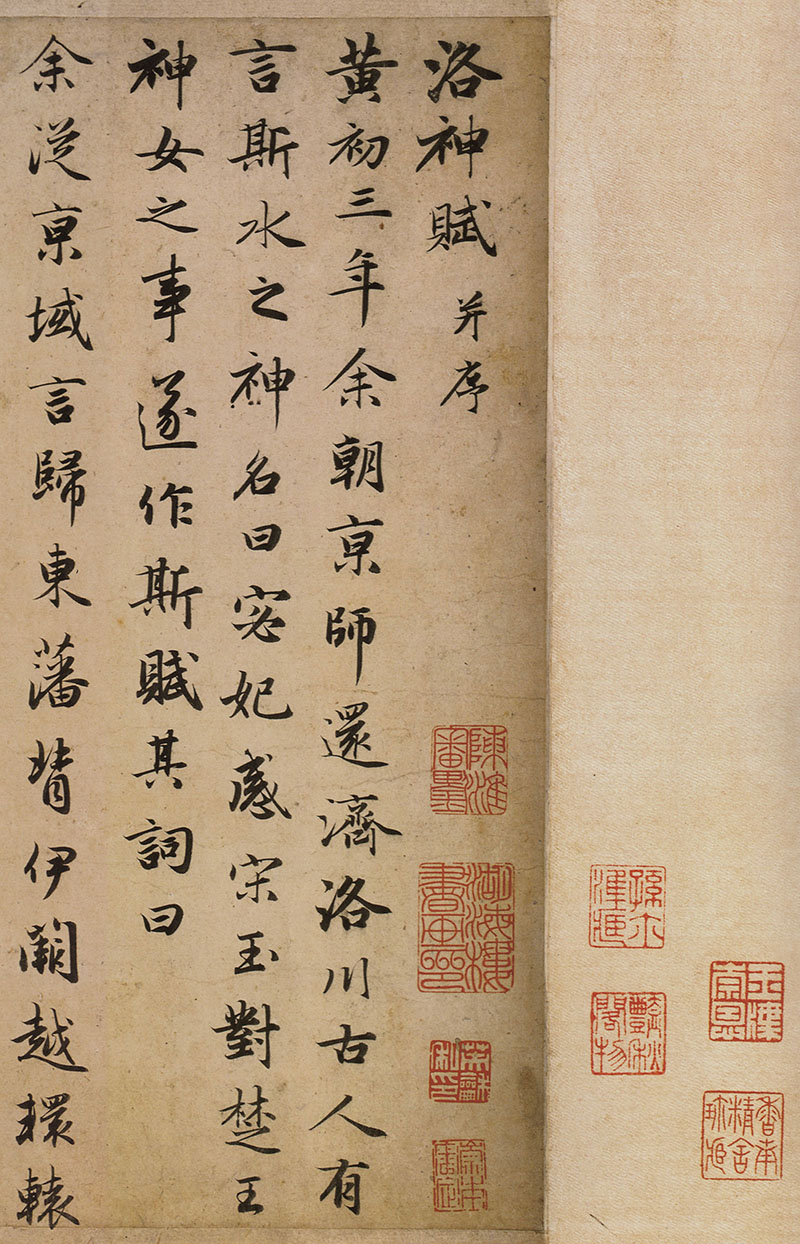 洛神賦 并序
黄初三年余朝京師還濟洛川古人有
言斯水之神名曰宓妃感宋玉對楚王
神女之事遂作斯賦其詞曰
余從京域言歸東藩背伊闕越轘轅
豔秋閣物